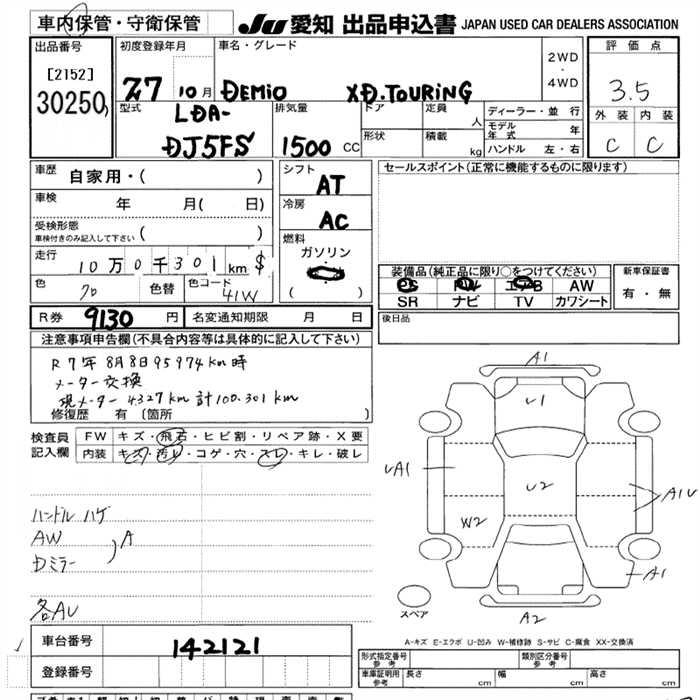 車内保管・守衛保管
JU 愛知 出品申込書 JAPAN USED CAR DEALERS ASSOCIATION
出品番号
[2152]
30250
初度登録年月
27 10月
車名・グレード
DEMIO XD.TOURING
2WD
・
4WD
評価点
3.5
外装 内装
C C
型式
LDA-
DJ5FS
排気量
1500 CC
ドア
形状
定員
人
積載
kg
ディーラー・並 行
モデル年式 年
ハンドル 左・右
車歴 自家用・( )
車検 年 月( 日)
受検形態
車検付きのみ記入して下さい ( )
走行 10万0千301km $
色 クロ 色替 色コード 41W
シフト
AT
冷房
AC
燃料
ガソリン
( )
セールスポイント(正常に機能するものに限ります)
装備品(純正品に限り○をつけてください)
PS PW エアB AW
SR ナビ TV カワシート
新車保証書
有・無
R券 9130 円 名変通知期限 月 日
後日品
注意事項申告欄(不具合内容等は具体的に記入して下さい)
R7年8月8日95974km時
メーター交換
現メーター4327km 計100.301km
修復歴 有 〔箇所 〕
検査員
記入欄
FW キズ・飛石・ヒビ割・リペア跡・X要
内装 キズ・汚レ・コゲ・穴・スレ・キレ・破レ
ハンドル ハゲ
AW
Dミラー
A
各AU
A1
U1
UA1
U2
A1U
W2
A1
A2
スペア
A-キズ E-エクボ U-凹み W-補修跡 S-サビ C-腐食 XX-交換済
車台番号 142121
登録番号
形式指定番号
参考
類別区分番号
参考
車庫証明用
参考
長さ cm 幅 cm 高さ cm